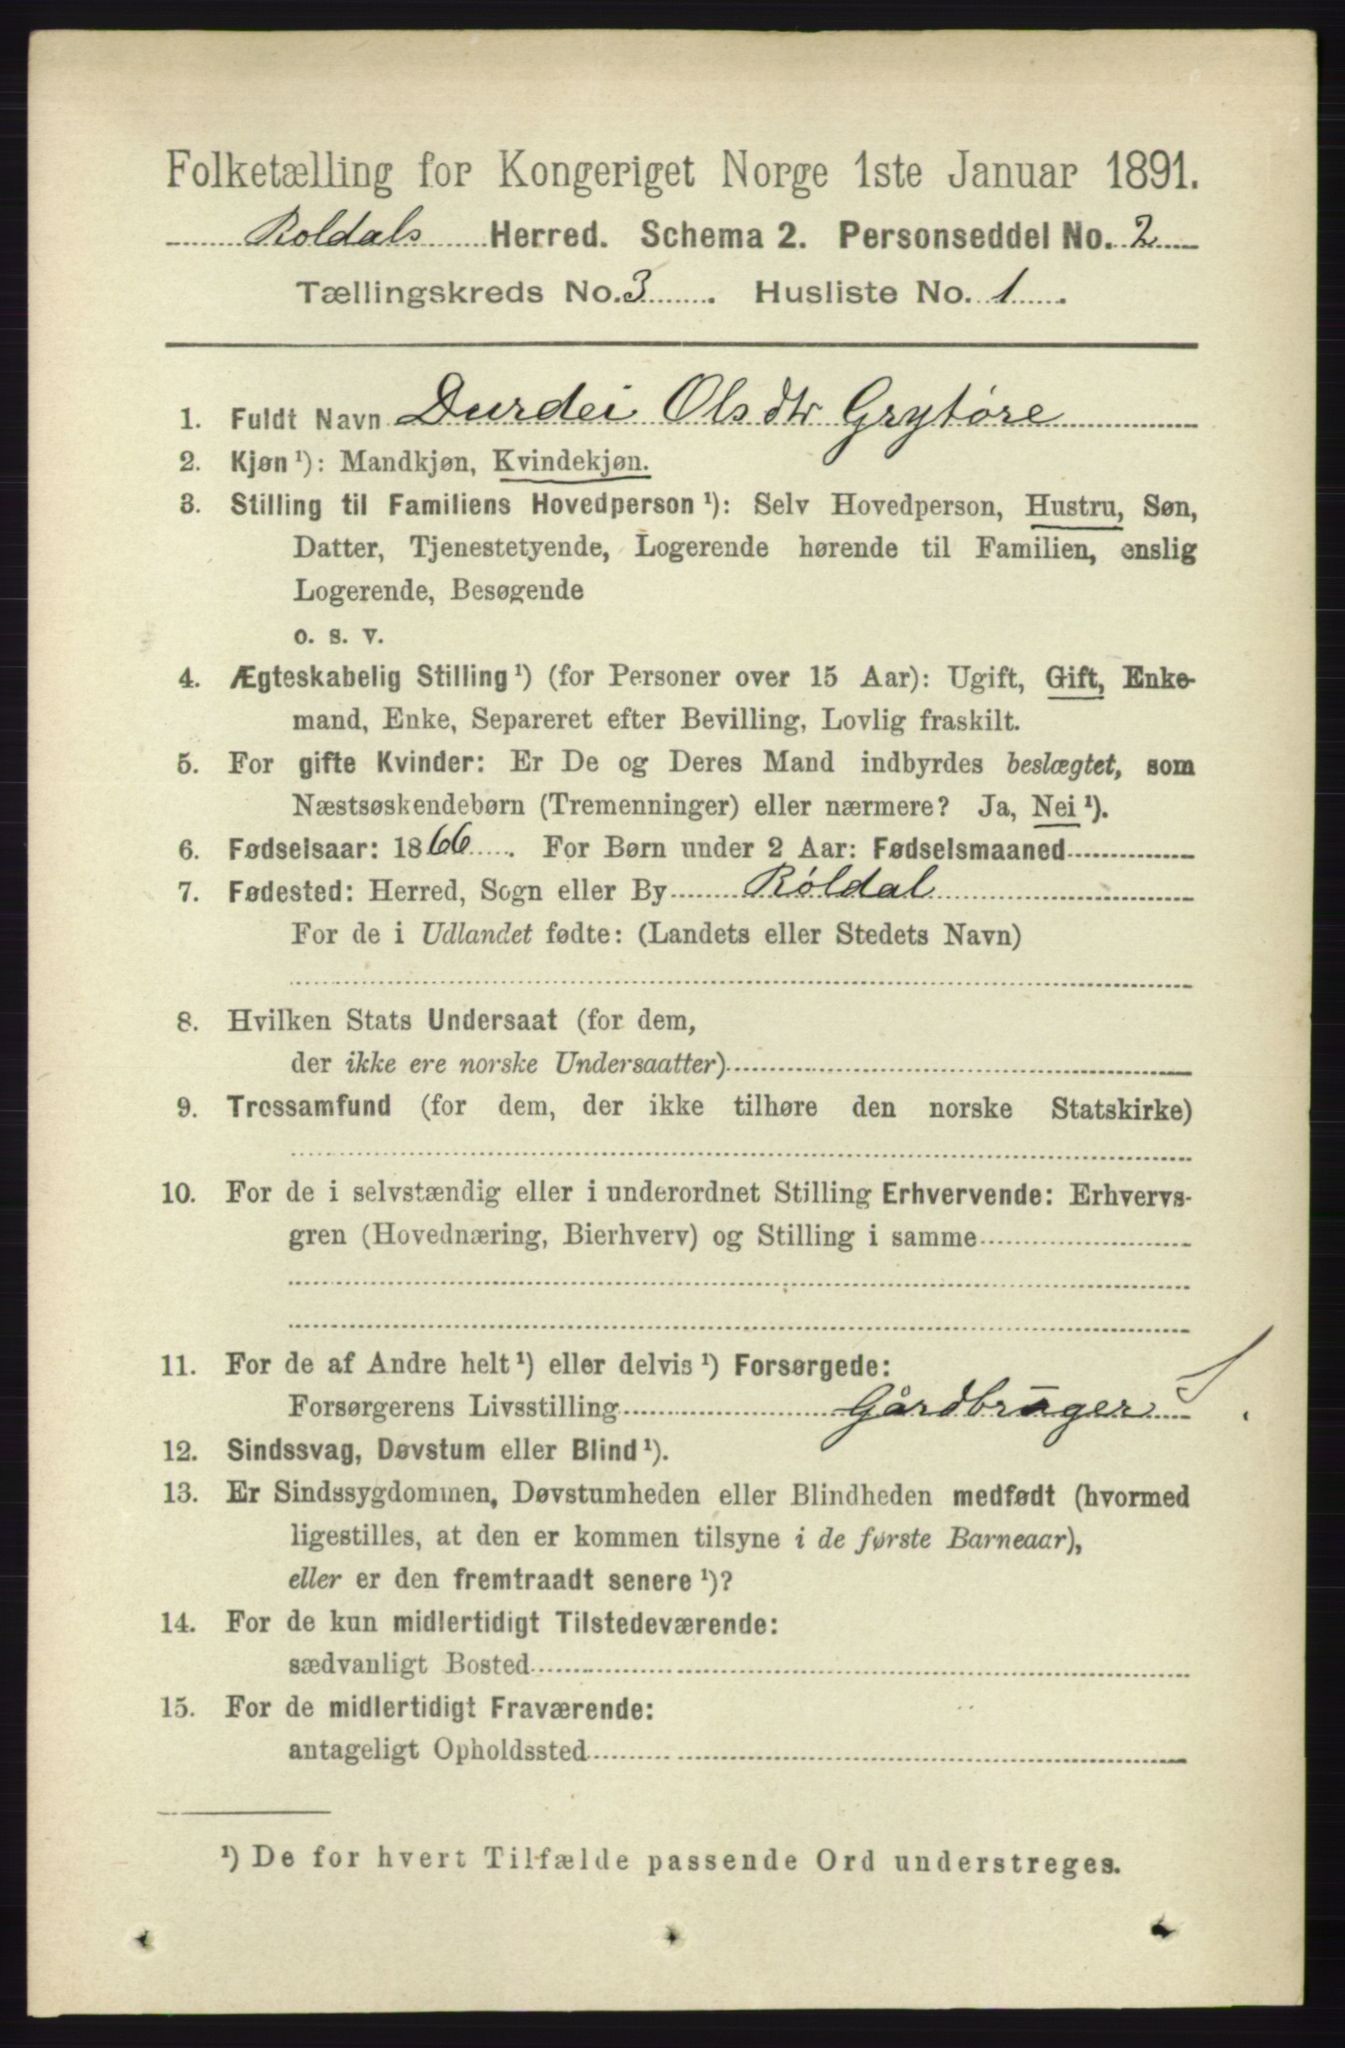 Folketælling for Kongeriget Norge 1ste Januar 1891.
Roldals Herred. Schema 2. Personseddel No. 2
Tællingskreds No. 3. Husliste No. 1.
1. Fuldt Navn Durdei Olsdtr Grytøre
2. Kjøn ¹): Mandkjøn, Kvindekjøn.
3. Stilling til Familiens Hovedperson ¹): Selv Hovedperson, Hustru, Søn,
Datter, Tjenestetyende, Logerende hørende til Familien, enslig
Logerende, Besøgende
o. s. v.
4. Ægteskabelig Stilling ¹) (for Personer over 15 Aar): Ugift, Gift, Enke-
mand, Enke, Separeret efter Bevilling, Lovlig fraskilt.
5. For gifte Kvinder: Er De og Deres Mand indbyrdes beslægtet, som
Næstsøskendebørn (Tremenninger) eller nærmere? Ja, Nei ¹).
6. Fødselsaar: 1866. For Børn under 2 Aar: Fødselsmaaned
7. Fødested: Herred, Sogn eller By Røldal
For de i Udlandet fødte: (Landets eller Stedets Navn)
8. Hvilken Stats Undersaat (for dem,
der ikke ere norske Undersaatter)
9. Trossamfund (for dem, der ikke tilhøre den norske Statskirke)
10. For de i selvstændig eller i underordnet Stilling Erhvervende: Erhvervs-
gren (Hovednæring, Bierhverv) og Stilling i samme
11. For de af Andre helt ¹) eller delvis ¹) Forsørgede:
Forsørgerens Livsstilling Gårdbruger
12. Sindssvag, Døvstum eller Blind ¹).
13. Er Sindssygdommen, Døvstumheden eller Blindheden medfødt (hvormed
ligestilles, at den er kommen tilsyne i de første Barneaar),
eller er den fremtraadt senere ¹)?
14. For de kun midlertidigt Tilstedeværende:
sædvanligt Bosted
15. For de midlertidigt Fraværende:
antageligt Opholdssted
¹) De for hvert Tilfælde passende Ord understreges.